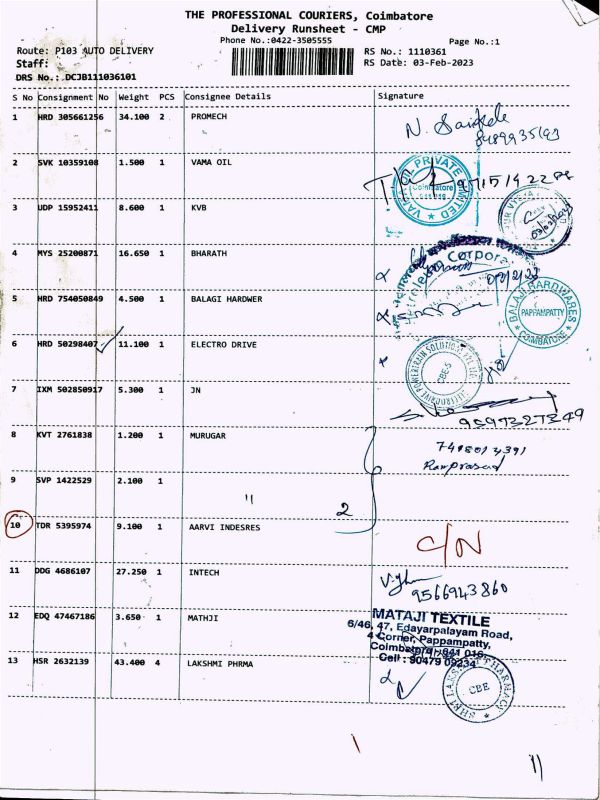 THE PROFESSIONAL COURIERS, Coimbatore
Delivery Runsheet - CMP
Phone No.:0422-3505555
Page No.:1
Route: P103 AUTO DELIVERY
RS No.: 1110361
Staff:
RS Date: 03-Feb-2023
DRS No.: DCJB111036101
S No Consignment No Weight PCS Consignee Details Signature
1 HRD 305661256 34.100 2 PROMECH
2 SVK 10359108 1.500 1 VAMA OIL
VAMA OIL PRIVATE LIMITED
Coimbatore
3 UDP 15952411 8.600 1 KVB
4 MYS 25200871 16.650 1 BHARATH
5 HRD 754050849 4.500 1 BALAGI HARDWER
BALAJI HARDWARES
PAPPAMPATTY
COIMBATORE
6 HRD 50298407 11.100 1 ELECTRO DRIVE
CBE-5
7 IXM 502850917 5.300 1 JN
9597327349
8 KVT 2761838 1.200 1 MURUGAR
Ramprasad
9 SVP 1422529 2.100 1 "
2
10 TDR 5395974 9.100 1 AARVI INDESRES
C/N
11 DDG 4686107 27.250 1 INTECH
9566943860
12 EDQ 47467186 3.650 1 MATHJI
MATAJI TEXTILE
6/46, 47, Edayarpalayam Road,
4 Corner, Pappampatty,
Coimbatore - 641 016.
Cell : 90479 09234
13 HSR 2632139 43.400 4 LAKSHMI PHRMA
CBE